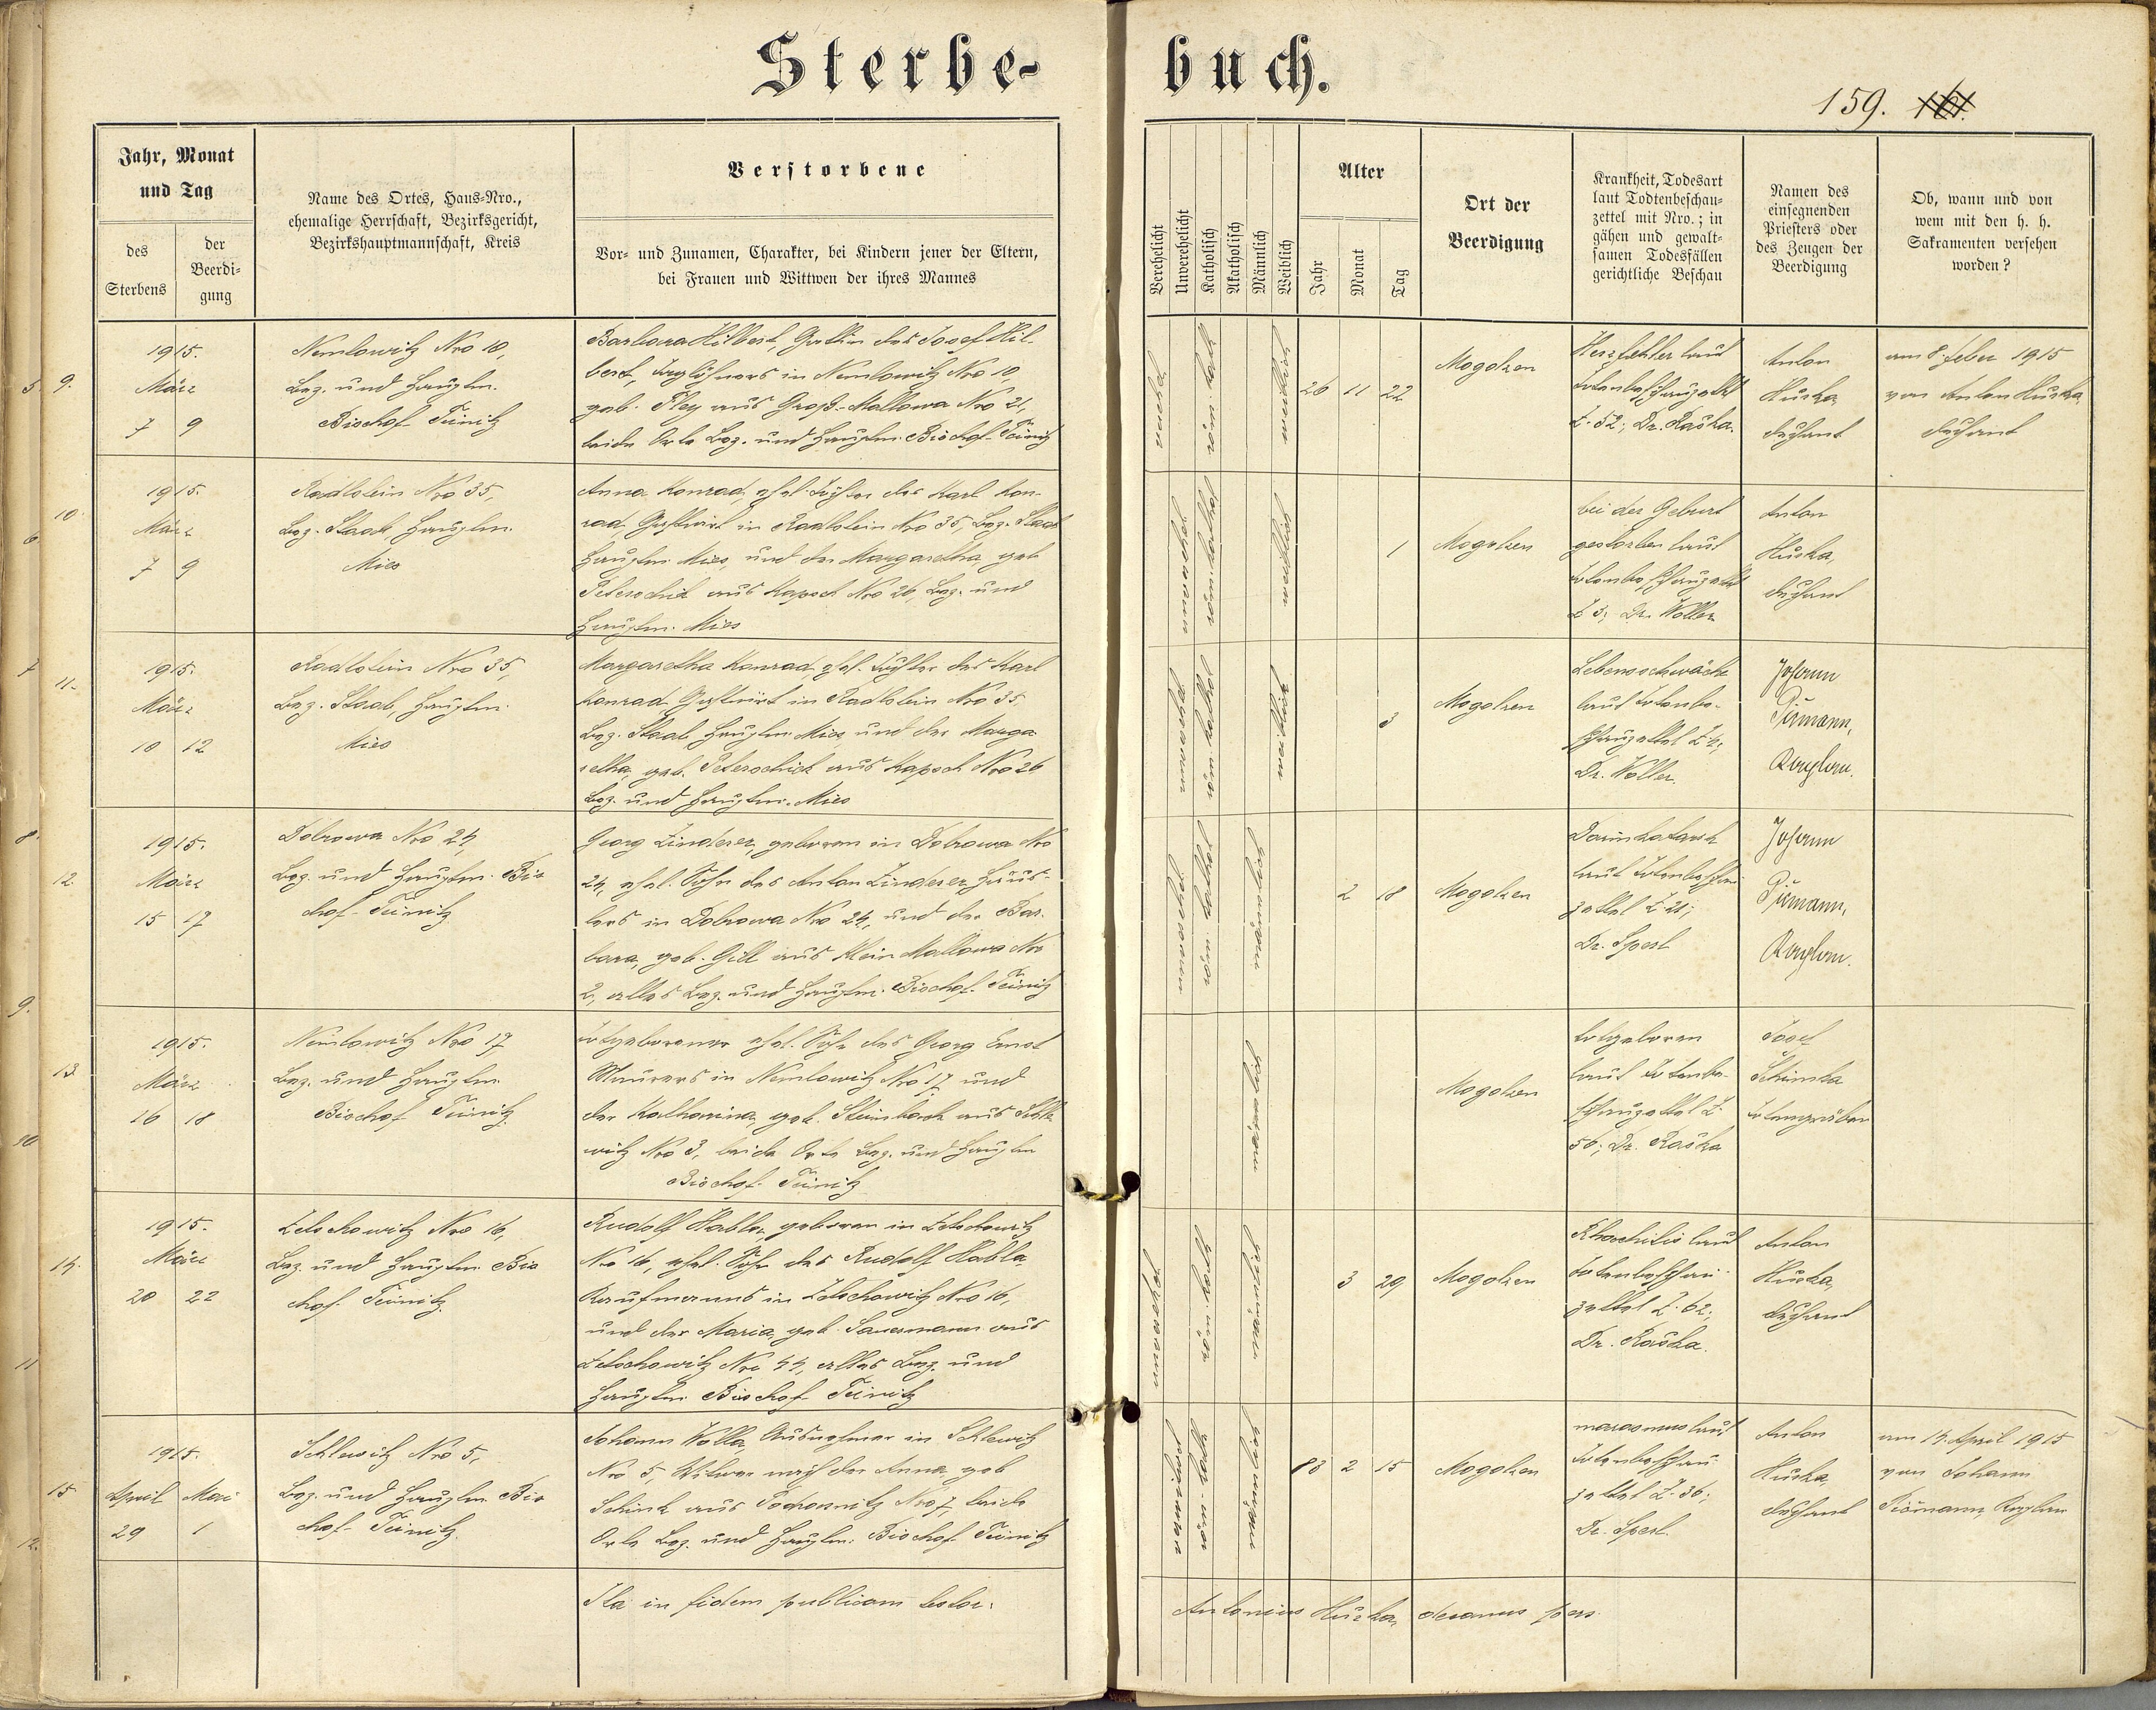 Sterbe-
buch.
159. 161.
Jahr, Monat
und Tag
des
Sterbens
der
Beerdi-
gung
Name des Ortes, Haus-Nro.,
ehemalige Herrschaft, Bezirksgericht,
Bezirkshauptmannschaft, Kreis
Verstorbene
Vor- und Zunamen, Charakter, bei Kindern jener der Eltern,
bei Frauen und Wittwen der ihres Mannes
Verehelicht
Unverehelicht
Katholisch
Akatholisch
Männlich
Weiblich
Alter
Jahr
Monat
Tag
Ort der
Beerdigung
Krankheit, Todesart
laut Todtenbeschau-
zettel mit Nro.; in
gähen und gewalt-
samen Todesfällen
gerichtliche Beschau
Namen des
einsegnenden
Priesters oder
des Zeugen der
Beerdigung
Ob, wann und von
wem mit den h. h.
Sakramenten versehen
worden?
9.
1915.
März
7 9
Nemlowitz Nro 10,
Bez. und Hauptm.
Bischof Teinitz
Barbara Hilbert, Gattin des Josef Hil-
bert, Taglöhners in Nemlowitz Nro 10,
geb. Pley aus Groß-Mallowa Nro 21,
beide Orte Bez. und Hauptm. Bischof-Teinitz
26 11 22
Mogolzen
Herzfehler laut
Totenbeschauzettel
Z. 52; Dr. Raška.
Anton
Huska
Dechant
am 8. Feber 1915
von Anton Huska
Dechant
10.
1915.
März
7 9
Radlstein Nro 35,
Bez. Staab, Hauptm.
Mies
Anna Konrad, ehel. Tochter des Karl Kon-
rad, Gastwirt in Radlstein Nro 35, Bez. Staab
Hauptm. Mies, und der Margaretha, geb.
Peterschick aus Kapsch Nro 26, Bez. und
Hauptm. Mies
1
Mogolzen
bei der Geburt
gestorben laut
Totenbeschauzettel
Z 3; Dr. Woller
Anton
Huska,
Dechant
11.
1915.
März
10 12
Radlstein Nro 35,
Bez. Staab, Hauptm.
Mies
Margaretha Konrad, ehel. Tochter des Karl
Konrad Gastwirt in Radlstein Nro 35
Bez. Staab Hauptm. Mies, und der Marga-
retha, geb. Peterschick aus Kapsch Nro 26
Bez. und Hauptm. Mies
3
Mogolzen
Lebensschwäche
laut Totenbe-
schauzettel Z 4;
Dr. Woller.
Johann
Pirmann,
Kaplan.
12.
1915.
März
15 17
Dobrowa Nro 24,
Bez. und Hauptm. Bis
chof-Teinitz
Georg Linderer, geboren in Dobrowa Nro
24, ehel. Sohn des Anton Linderer, Häus-
lers in Dobrowa Nro 24, und der Bar-
bara, geb. Gill aus Klein Mallowa Nro
2, alles Bez. und Hauptm. Bischof-Teinitz
2 18
Mogolzen
Darmkatarrh
laut Totenbeschau
zettel Z 21;
Dr. Sperl
Johann
Pirmann,
Kaplan.
13.
1915.
März
16 18
Nemlowitz Nro 17
Bez. und Hauptm.
Bischof Teinitz
Totgeborener ehel. Sohn des Georg Ernst
Maurers in Nemlowitz Nro 17, und
der Katharina, geb. Steinbach aus Schle
witz Nro 3, beide Orte Bez. und Hauptm
Bischof-Teinitz
Mogolzen
totgeboren
laut Totenbe-
schauzettel Z.
56; Dr. Raška
Josef
Schimka
Totengräber
14.
1915.
März
20 22
Zetschowitz Nro 16,
Bez. und Hauptm. Bis
chof-Teinitz.
Rudolf Habla, geboren in Zetschowitz
Nro 16, ehel. Sohn des Rudolf Habla
Kaufmanns in Zetschowitz Nro 16,
und der Maria, geb. Sauermann aus
Zetschowitz Nro 44, alles Bez. und
Hauptm. Bischof Teinitz
3 29
Mogolzen
Rhachitis laut
Totenbeschau-
zettel Z. 62;
Dr. Raška.
Anton
Huska,
Dechant
15
1915.
April Mai
29 1
Schlewitz Nro 5,
Bez. und Hauptm. Bis
chof-Teinitz.
Johann Wolla, Ausnehmer in Schlewitz
Nro 5, Witwer nach der Anna, geb
Schink aus Podrasnitz Nro 7, beide
Orte Bez. und Hauptm. Bischof-Teinitz
83 2 15
Mogolzen
marasmus laut
Totenbeschau-
zettel Z. 36;
Dr. Sperl.
Anton
Huska,
Dechant
am 14. April 1915
von Johann
Pirmann, Kaplan
Ita in fidem publicam testor:
Antonius Huska, decanus pers.